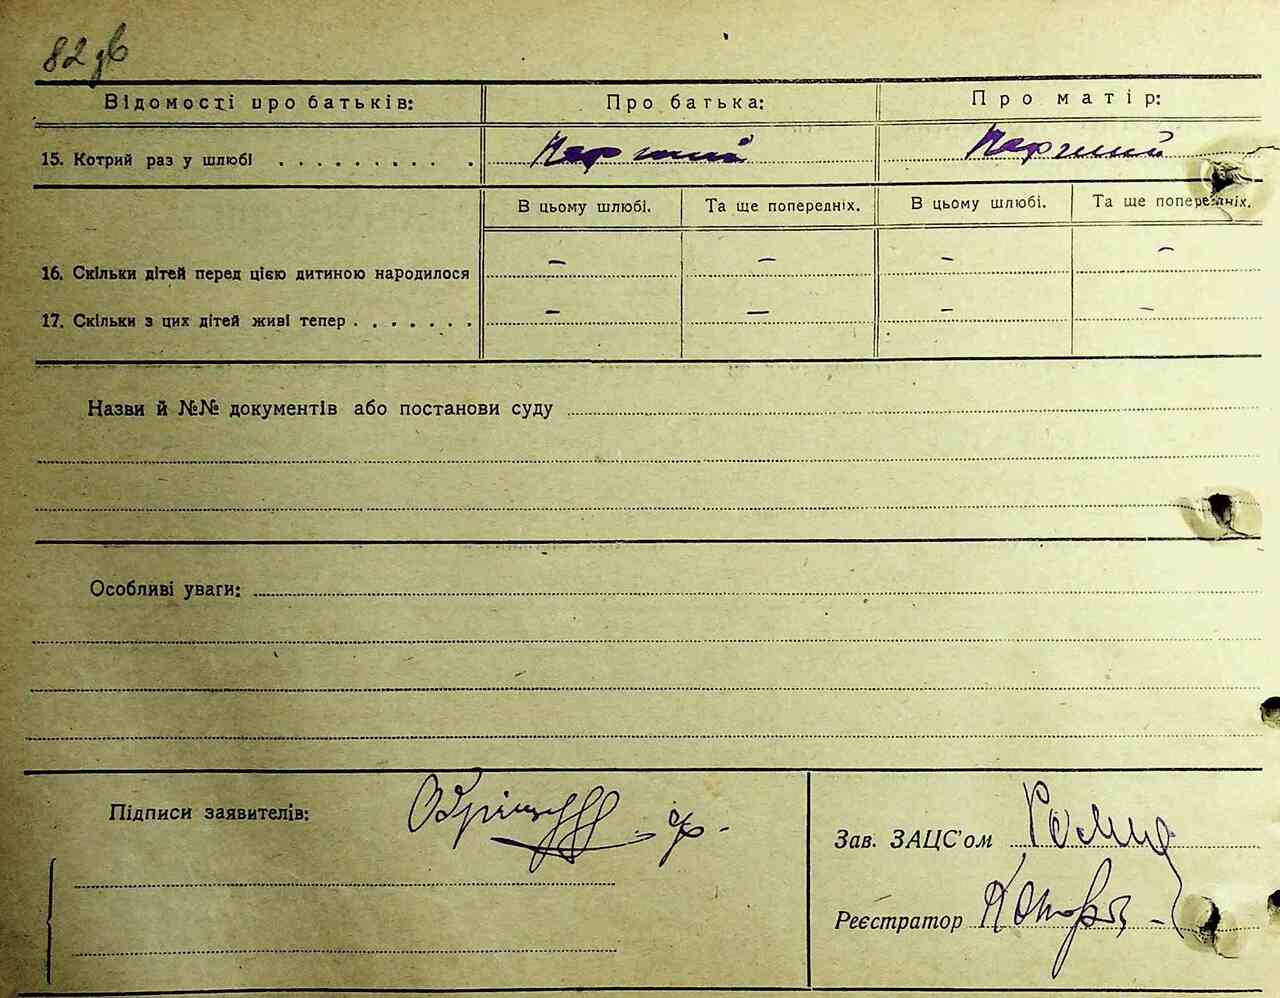 82 зв
Відомості про батьків: Про батька: Про матір:
15. Котрий раз у шлюбі . . . . . . . . . . Перший Перший
В цьому шлюбі. Та ще попередніх. В цьому шлюбі. Та ще попередніх.
16. Скільки дітей перед цією дитиною народилося – – – –
17. Скільки з цих дітей живі тепер . . . . . . . – – – –
Назви й №№ документів або постанови суду
Особливі уваги:
Підписи заявителів:
Зав. ЗАЦС'ом
Реєстратор